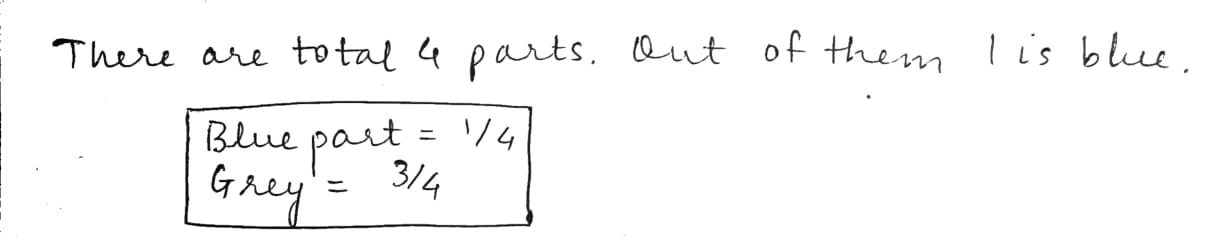 There are total 4 parts. Out of them 1 is blue.
Blue part = 1/4
Grey = 3/4